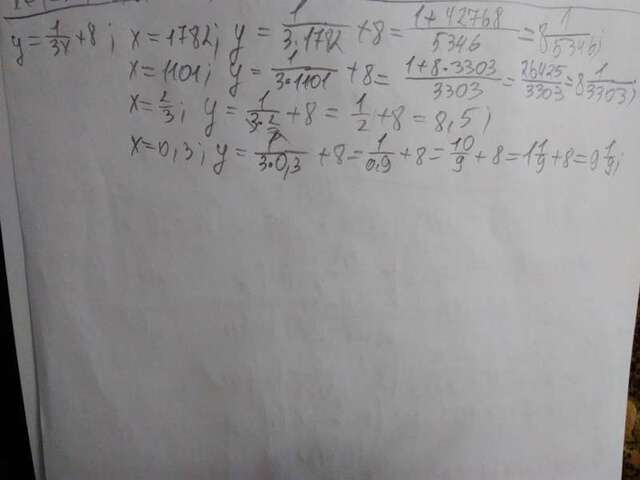 y = 1/3x + 8; x = 1782; y = 1/3·1782 + 8 = 1+42768/5346 = 8 1/5346;
x = 1101; y = 1/3·1101 + 8 = 1+8·3303/3303 = 26425/3303 = 8 1/3303;
x = 2/3; y = 1/3·2/3 + 8 = 1/2 + 8 = 8,5;
x = 0,3; y = 1/3·0,3 + 8 = 1/0,9 + 8 = 10/9 + 8 = 1 1/9 + 8 = 9 1/9;